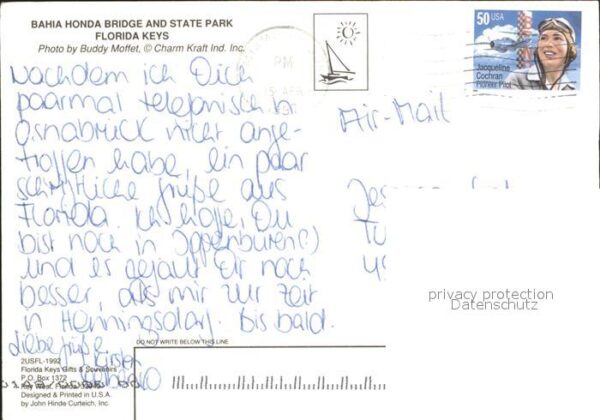 BAHIA HONDA BRIDGE AND STATE PARK
FLORIDA KEYS
Photo by Buddy Moffet, © Charm Kraft Ind. Inc.
PM
50 USA
Jacqueline
Cochran
Pioneer Pilot
Nachdem ich Dich
paarmal telefonisch in
Osnabrück nicht ange-
troffen habe, ein paar
schriftliche Grüße aus
Florida. Ich hoffe, Du
bist noch in Ibbenbüren(!)
und es gefällt Dir noch
besser, als mir zur Zeit
in Henningsdorf. Bis bald.
Liebe Grüße
Kirsten
Air-Mail
privacy protection
Datenschutz
DO NOT WRITE BELOW THIS LINE
2USFL-1992
Florida Keys Gifts & Souvenirs
P.O. Box 1372
Key West, Florida
Designed & Printed in U.S.A.
by John Hinde Curteich, Inc.